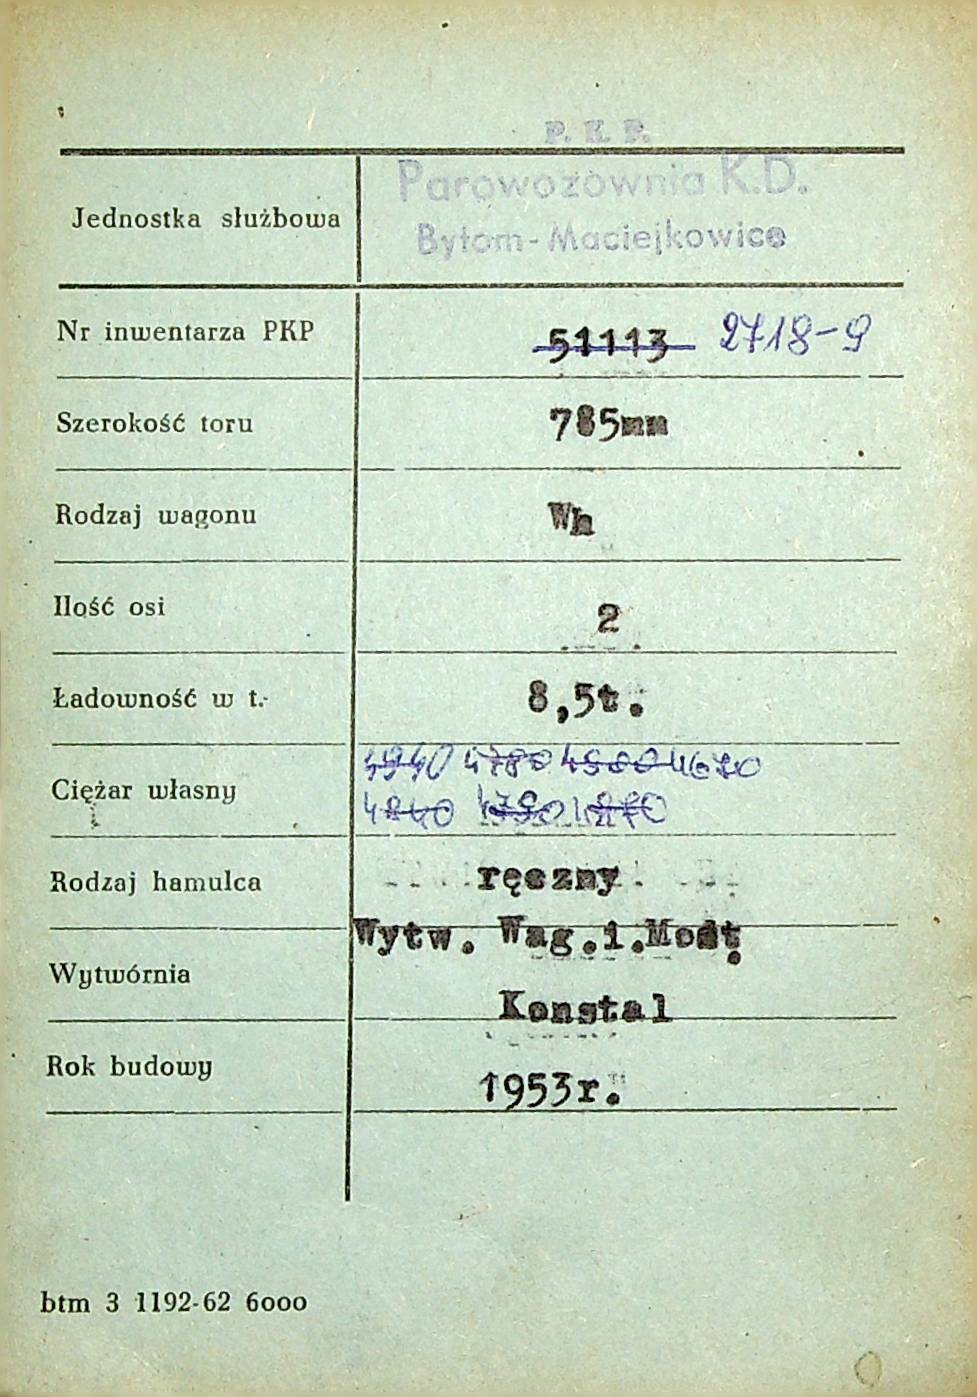 P. K. P.
Parowozownia K.D.
Jednostka służbowa
Bytom-Maciejkowice
Nr inwentarza PKP 51113 2718-9
Szerokość toru 785mm
Rodzaj wagonu Wh
Ilość osi 2
Ładowność w t. 8,5t.
4940 4780 4900 4620
Ciężar własny
4840
Rodzaj hamulca ręczny
Wytw. Wag.i.Most
Wytwórnia
Konstal
Rok budowy 1953r.
btm 3 1192-62 6000